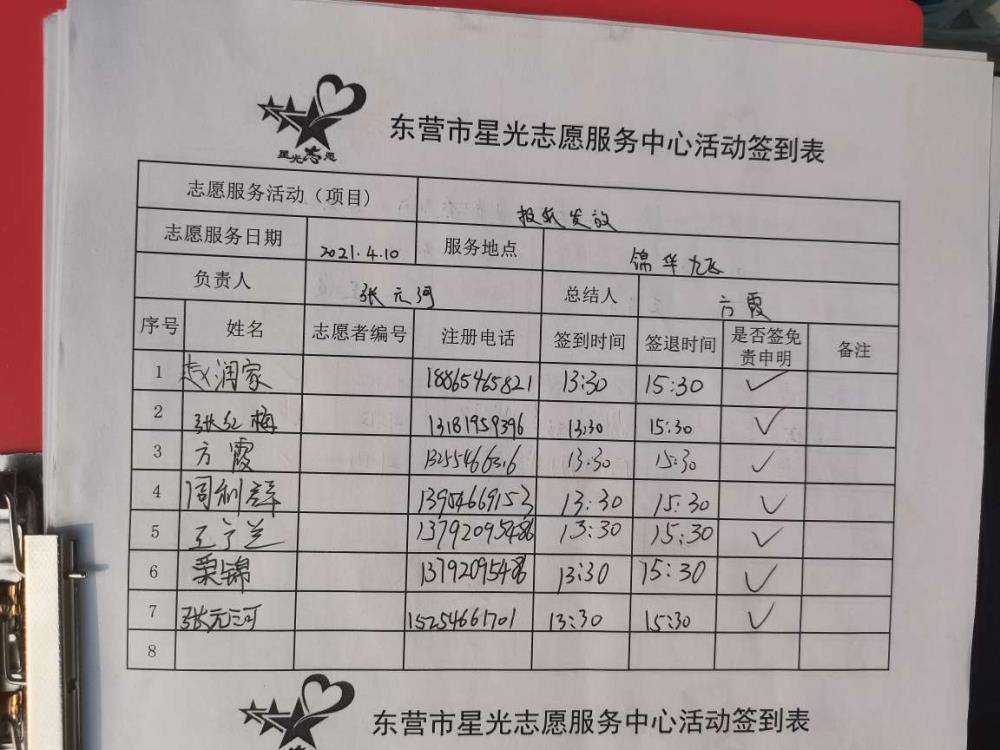 星光志愿
东营市星光志愿服务中心活动签到表
志愿服务活动（项目） 报纸发放
志愿服务日期 2021.4.10 服务地点 锦华九区
负责人 张元河 总结人 方霞
序号 姓名 志愿者编号 注册电话 签到时间 签退时间 是否签免责申明 备注
1 赵润家 18865465821 13:30 15:30 ✓
2 张红梅 13181959396 13:30 15:30 ✓
3 方霞 13255466316 13:30 15:30 ✓
4 13954669153 13:30 15:30 ✓
5 王宁兰 13792095486 13:30 15:30 ✓
6 栗锦 13792095486 13:30 15:30 ✓
7 张元河 15254661701 13:30 15:30 ✓
8
东营市星光志愿服务中心活动签到表